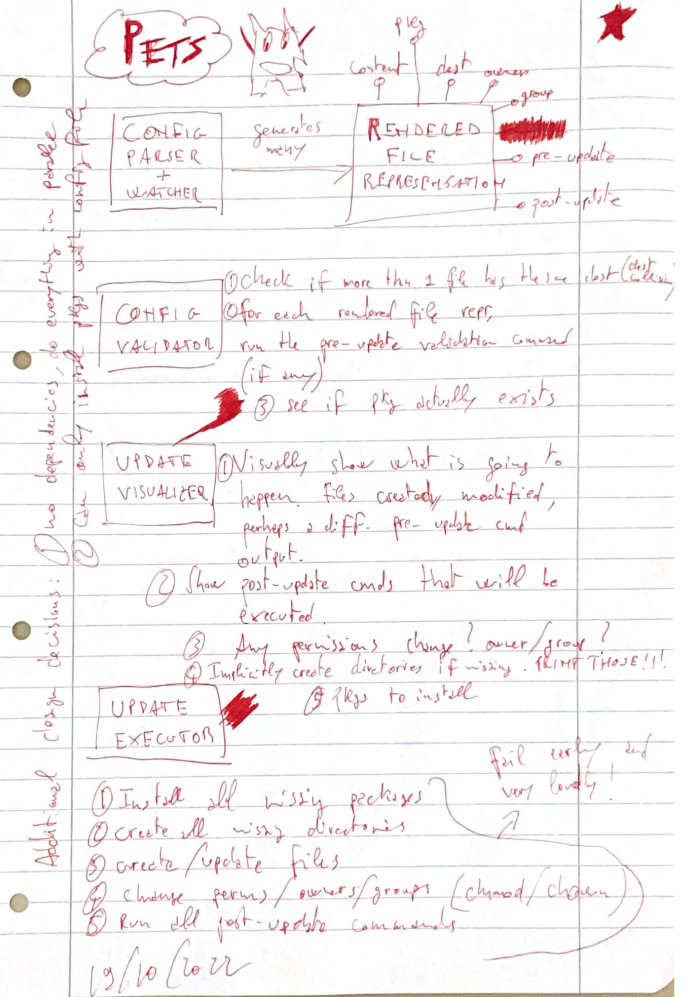 PETS
pkg
content dest owner
group
CONFIG
PARSER
+
WATCHER
generates
many
RENDERED
FILE
REPRESENTATION
pre-update
post-update
CONFIG
VALIDATOR
① Check if more than 1 file has the same dest (dest
② for each rendered file repr,
run the pre-update validation command
(if any)
③ see if pkg actually exists
UPDATE
VISUALIZER
① Visually show what is going to
happen. files created, modified,
perhaps a diff. pre-update cmd
output.
② Show post-update cmds that will be
executed.
③ Any permissions change? owner/group?
④ Implicitly create directories if missing. PRINT THOSE!!!
⑤ Pkgs to install
UPDATE
EXECUTOR
fail early and
very loudly!
① Install all missing packages
② create all missing directories
③ create/update files
④ change perms/owners/groups (chmod/chown)
⑤ Run all post-update commands
19/10/2022
Additional design decisions: ① no dependencies, do everything in parallel
② Can only install pkgs with config file